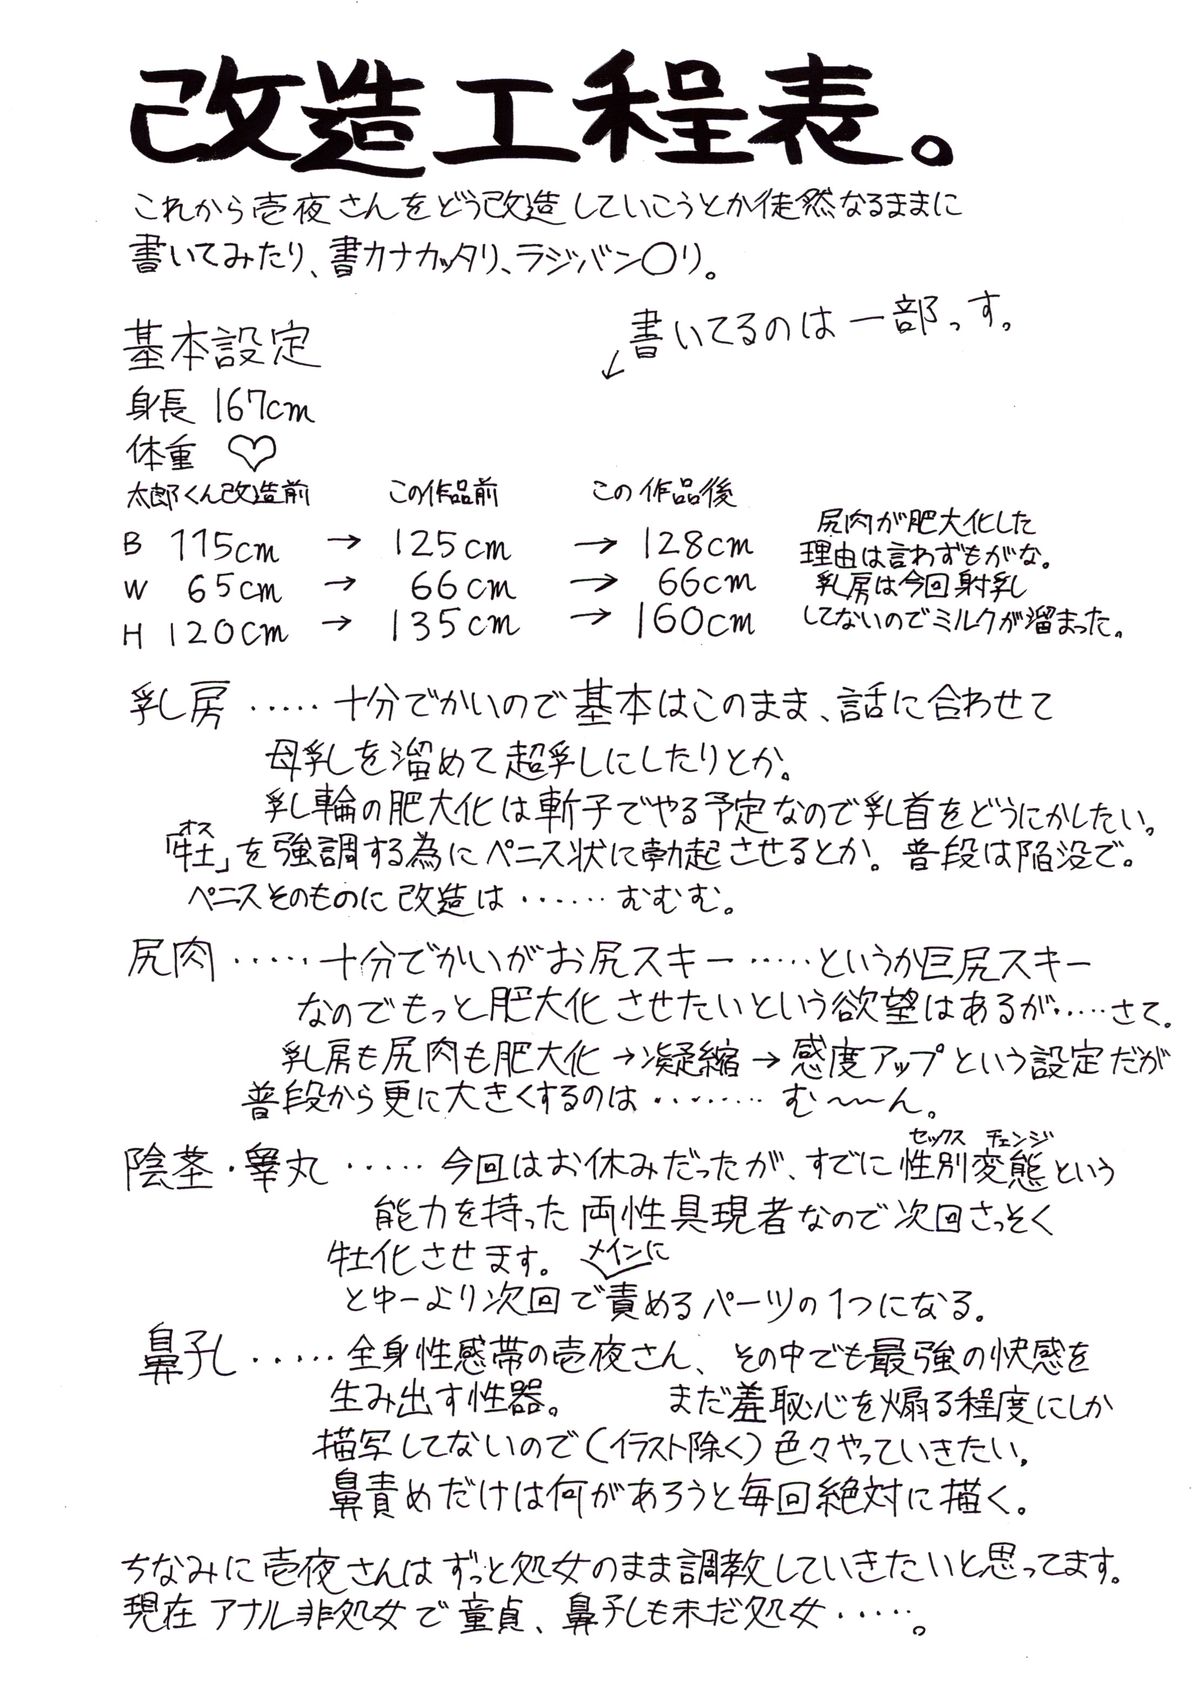 改造工程表。
これから壱夜さんをどう改造していこうとか徒然なるままに
書いてみたり、書カナカッタリ、ラジバン〇リ。
書いてるのは一部っす。
↙
基本設定
身長 167cm
体重 ♡
太郎くん改造前 この作品前 この作品後
B 115cm → 125cm → 128cm
W 65cm → 66cm → 66cm
H 120cm → 135cm → 160cm
尻肉が肥大化した
理由は言わずもがな。
乳房は今回射乳
してないのでミルクが溜まった。
乳房 ・・・・・ 十分でかいので基本はこのまま、話に合わせて
母乳を溜めて超乳にしたりとか。
乳輪の肥大化は斬子でやる予定なので乳首をどうにかしたい。
オス
「牡」を強調する為にペニス状に勃起させるとか。普段は陥没で。
ペニスそのものに改造は・・・・・・むむむ。
尻肉 ・・・・・ 十分でかいがお尻スキー・・・・・というか巨尻スキー
なのでもっと肥大化させたいという欲望はあるが・・・・・さて。
乳房も尻肉も肥大化→凝縮→感度アップという設定だが
普段から更に大きくするのは・・・・・・・・む〜〜ん。
セックス チェンジ
陰茎・睾丸 ・・・・・ 今回はお休みだったが、すでに性別変態という
能力を持った両性具現者なので次回さっそく
牡化させます。
メインに
とゆーより次回で責めるパーツの1つになる。
鼻孔 ・・・・・ 全身性感帯の壱夜さん、その中でも最強の快感を
生み出す性器。 まだ羞恥心を煽る程度にしか
描写してないので(イラスト除く)色々やっていきたい。
鼻責めだけは何があろうと毎回絶対に描く。
ちなみに壱夜さんはずっと処女のまま調教していきたいと思ってます。
現在アナル非処女で童貞、鼻孔も未だ処女・・・・・。